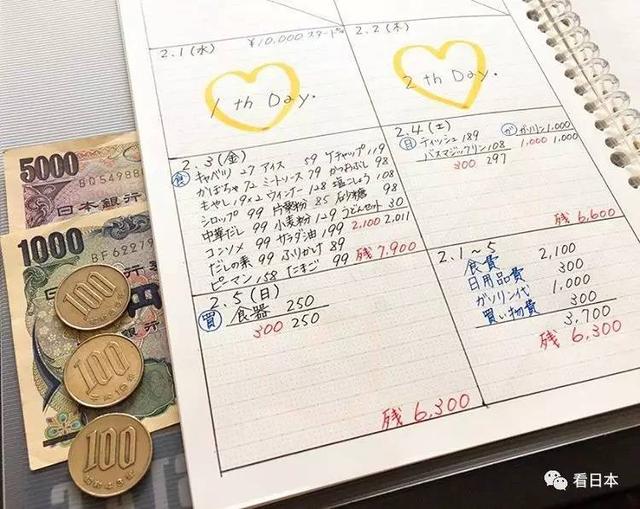 ¥10,000 スタート
2.1 (水)
1 th Day.
2.2 (木)
2 th Day.
2.3 (金)
食 キャベツ 27 アイス 59 ケチャップ 119
かぼちゃ 72 ミートソース 79 かつおぶし 98
もやし 19×2 ウィンナー 128 塩こしょう 108
シロップ 99 片栗粉 85 砂糖 98
中華だし 99 小麦粉 129 うどんセット 30
コンソメ 99 サラダ油 199 2,100 2,011
だしの素 99 ふりかけ 89
ピーマン 158 たまご 99 残 7,900
2.4 (土)
日 ティッシュ 189
バスマジックリン 108
300 297
ガ ガソリン 1,000
1,000 1,000
残 6,600
2.5 (日)
買 食器 250
300 250
残 6,300
2.1~5
食費 2,100
日用品費 300
ガソリン代 1,000
買い物費 300
3,700
残 6,300
5000
日本銀行
1000
日本銀行
100
100
100
看日本